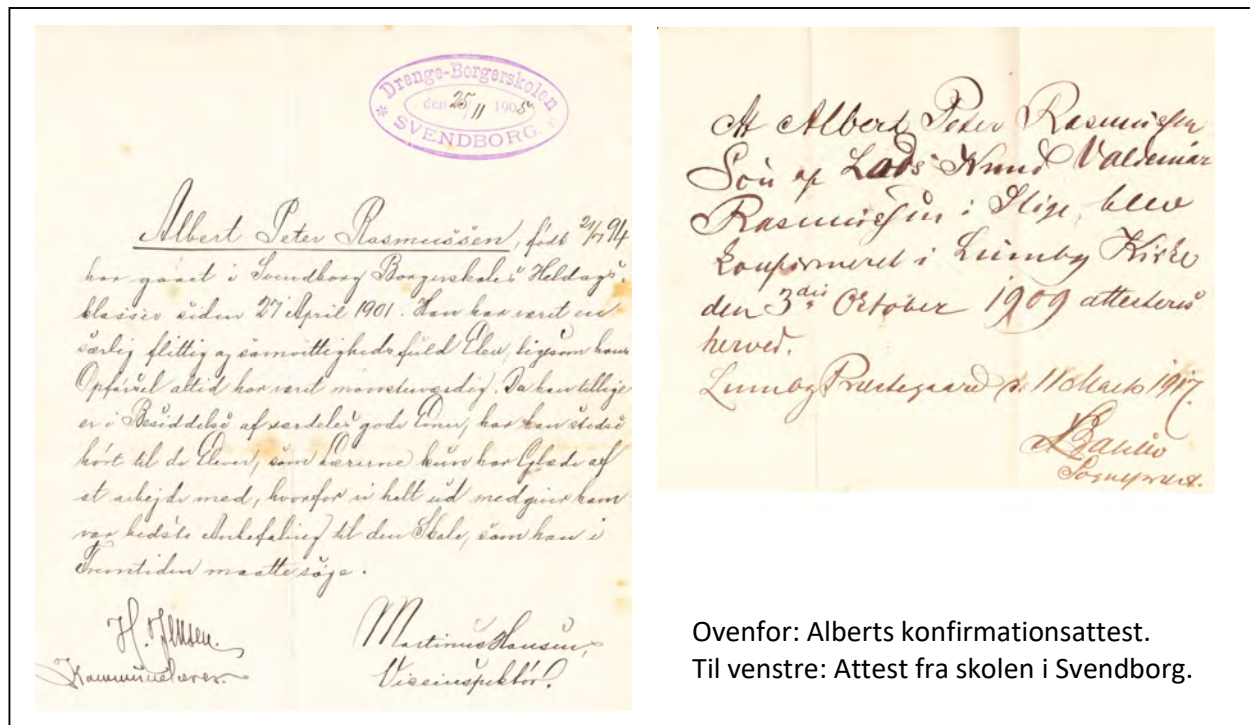 Drenge-Borgerskolen
den 25/11 1905
SVENDBORG.
Albert Peter Rasmussen, født 21/7 94
har gaaet i Svendborg Borgerskoles Heldags-
klasser siden 27 April 1901. Han har været en
særlig flittig og samvittighedsfuld Elev, ligesom hans
Opførsel altid har været mønsterværdig. Da han tillige
er i Besiddelse af særdeles gode Evner, har han stedse
hørt til de Elever, som Lærerne kun har Glæde af
at arbejde med, hvorfor vi helt ud medgiver ham
vor bedste Anbefaling til den Skole, som han i
Fremtiden maatte søge.
H. Jensen.
Kommunelærer.
Martinus Hansen,
Viceinspektør.
At Albert Peter Rasmussen
Søn af Lads Knud Valdemar
Rasmussen i Stige, blev
konfirmeret i Lumby Kirke
den 3die October 1909 attesteres
herved.
Lumby Præstegaard d. 11 Marts 1917.
Sognepræst.
Ovenfor: Alberts konfirmationsattest.
Til venstre: Attest fra skolen i Svendborg.